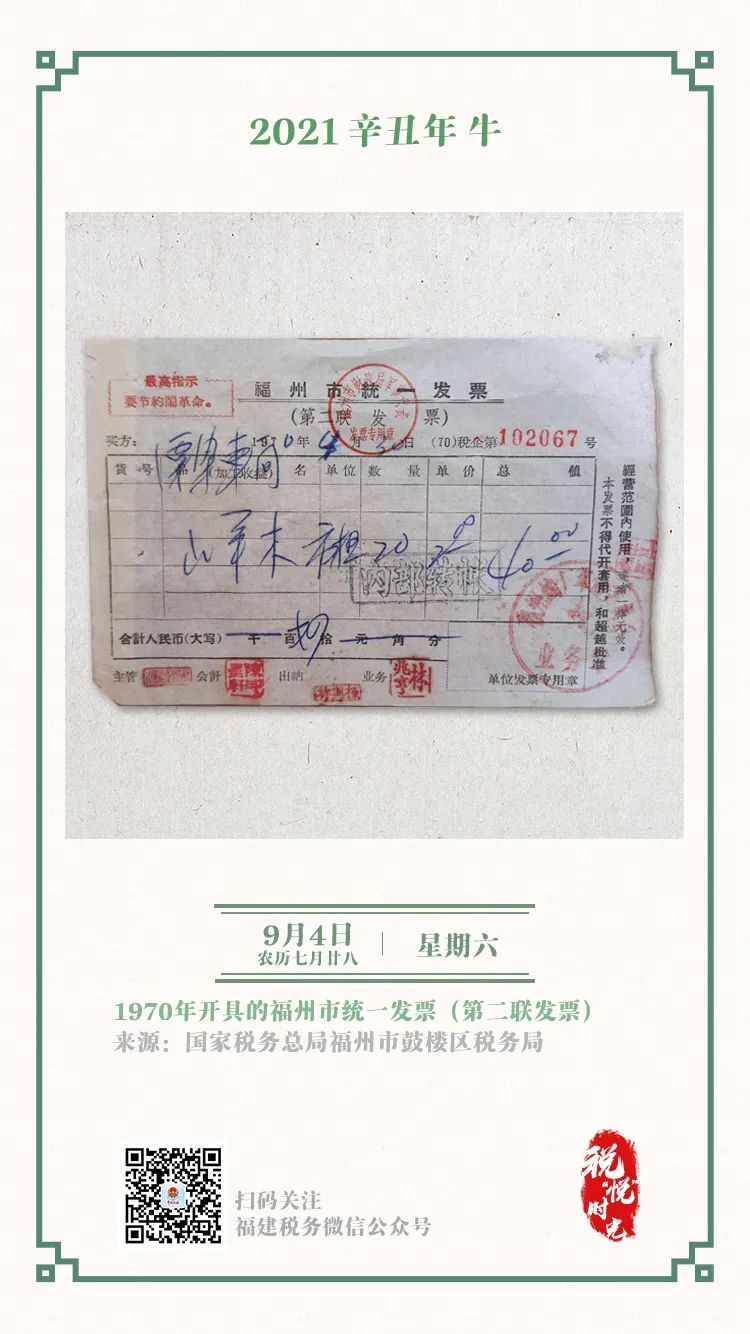 2021 辛丑年 牛
最高指示
要节約閙革命。
福州市統一发票
(第二联 发票)
发票专用章
买方：
1970年4月30日 (70)税企第102067号
货号 品(加工收益)名 单位 数量 单价 总值
20 40.00
内部转帐
合計人民币(大写) 千 百 拾 元 角 分
主管 会計 出納 业务
业务
单位发票专用章
經营范圍内使用，
本发票不得代开套用，和超越批准
9月4日
农历七月廿八
星期六
1970年开具的福州市统一发票（第二联发票）
来源：国家税务总局福州市鼓楼区税务局
扫码关注
福建税务微信公众号
税
"悦"
时
光